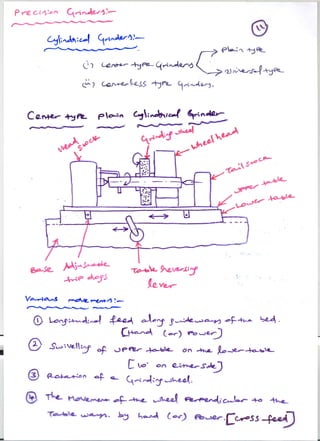 Precision Grinders:-
11
Cylindrical Grinders:-
Plain type
(i) Center type Grinders
Universal type
(ii) Centerless type Grinders.
Center type plain Cylindrical Grinder
Head stock
Grinding wheel
wheel head
Tail stock
upper table
Lower table
Base
Adjustable
trip dogs
Table Reversing
lever
Various movements:-
① Longitudinal feed along guideways of the bed.
[Hand (or) Power]
② Swivelling of upper table on the lower table
[10° on either side]
③ Rotation of a Grinding wheel.
④ The Movement of the wheel Perpendicular to the
Table ways. by hand (or) Power [cross-feed]